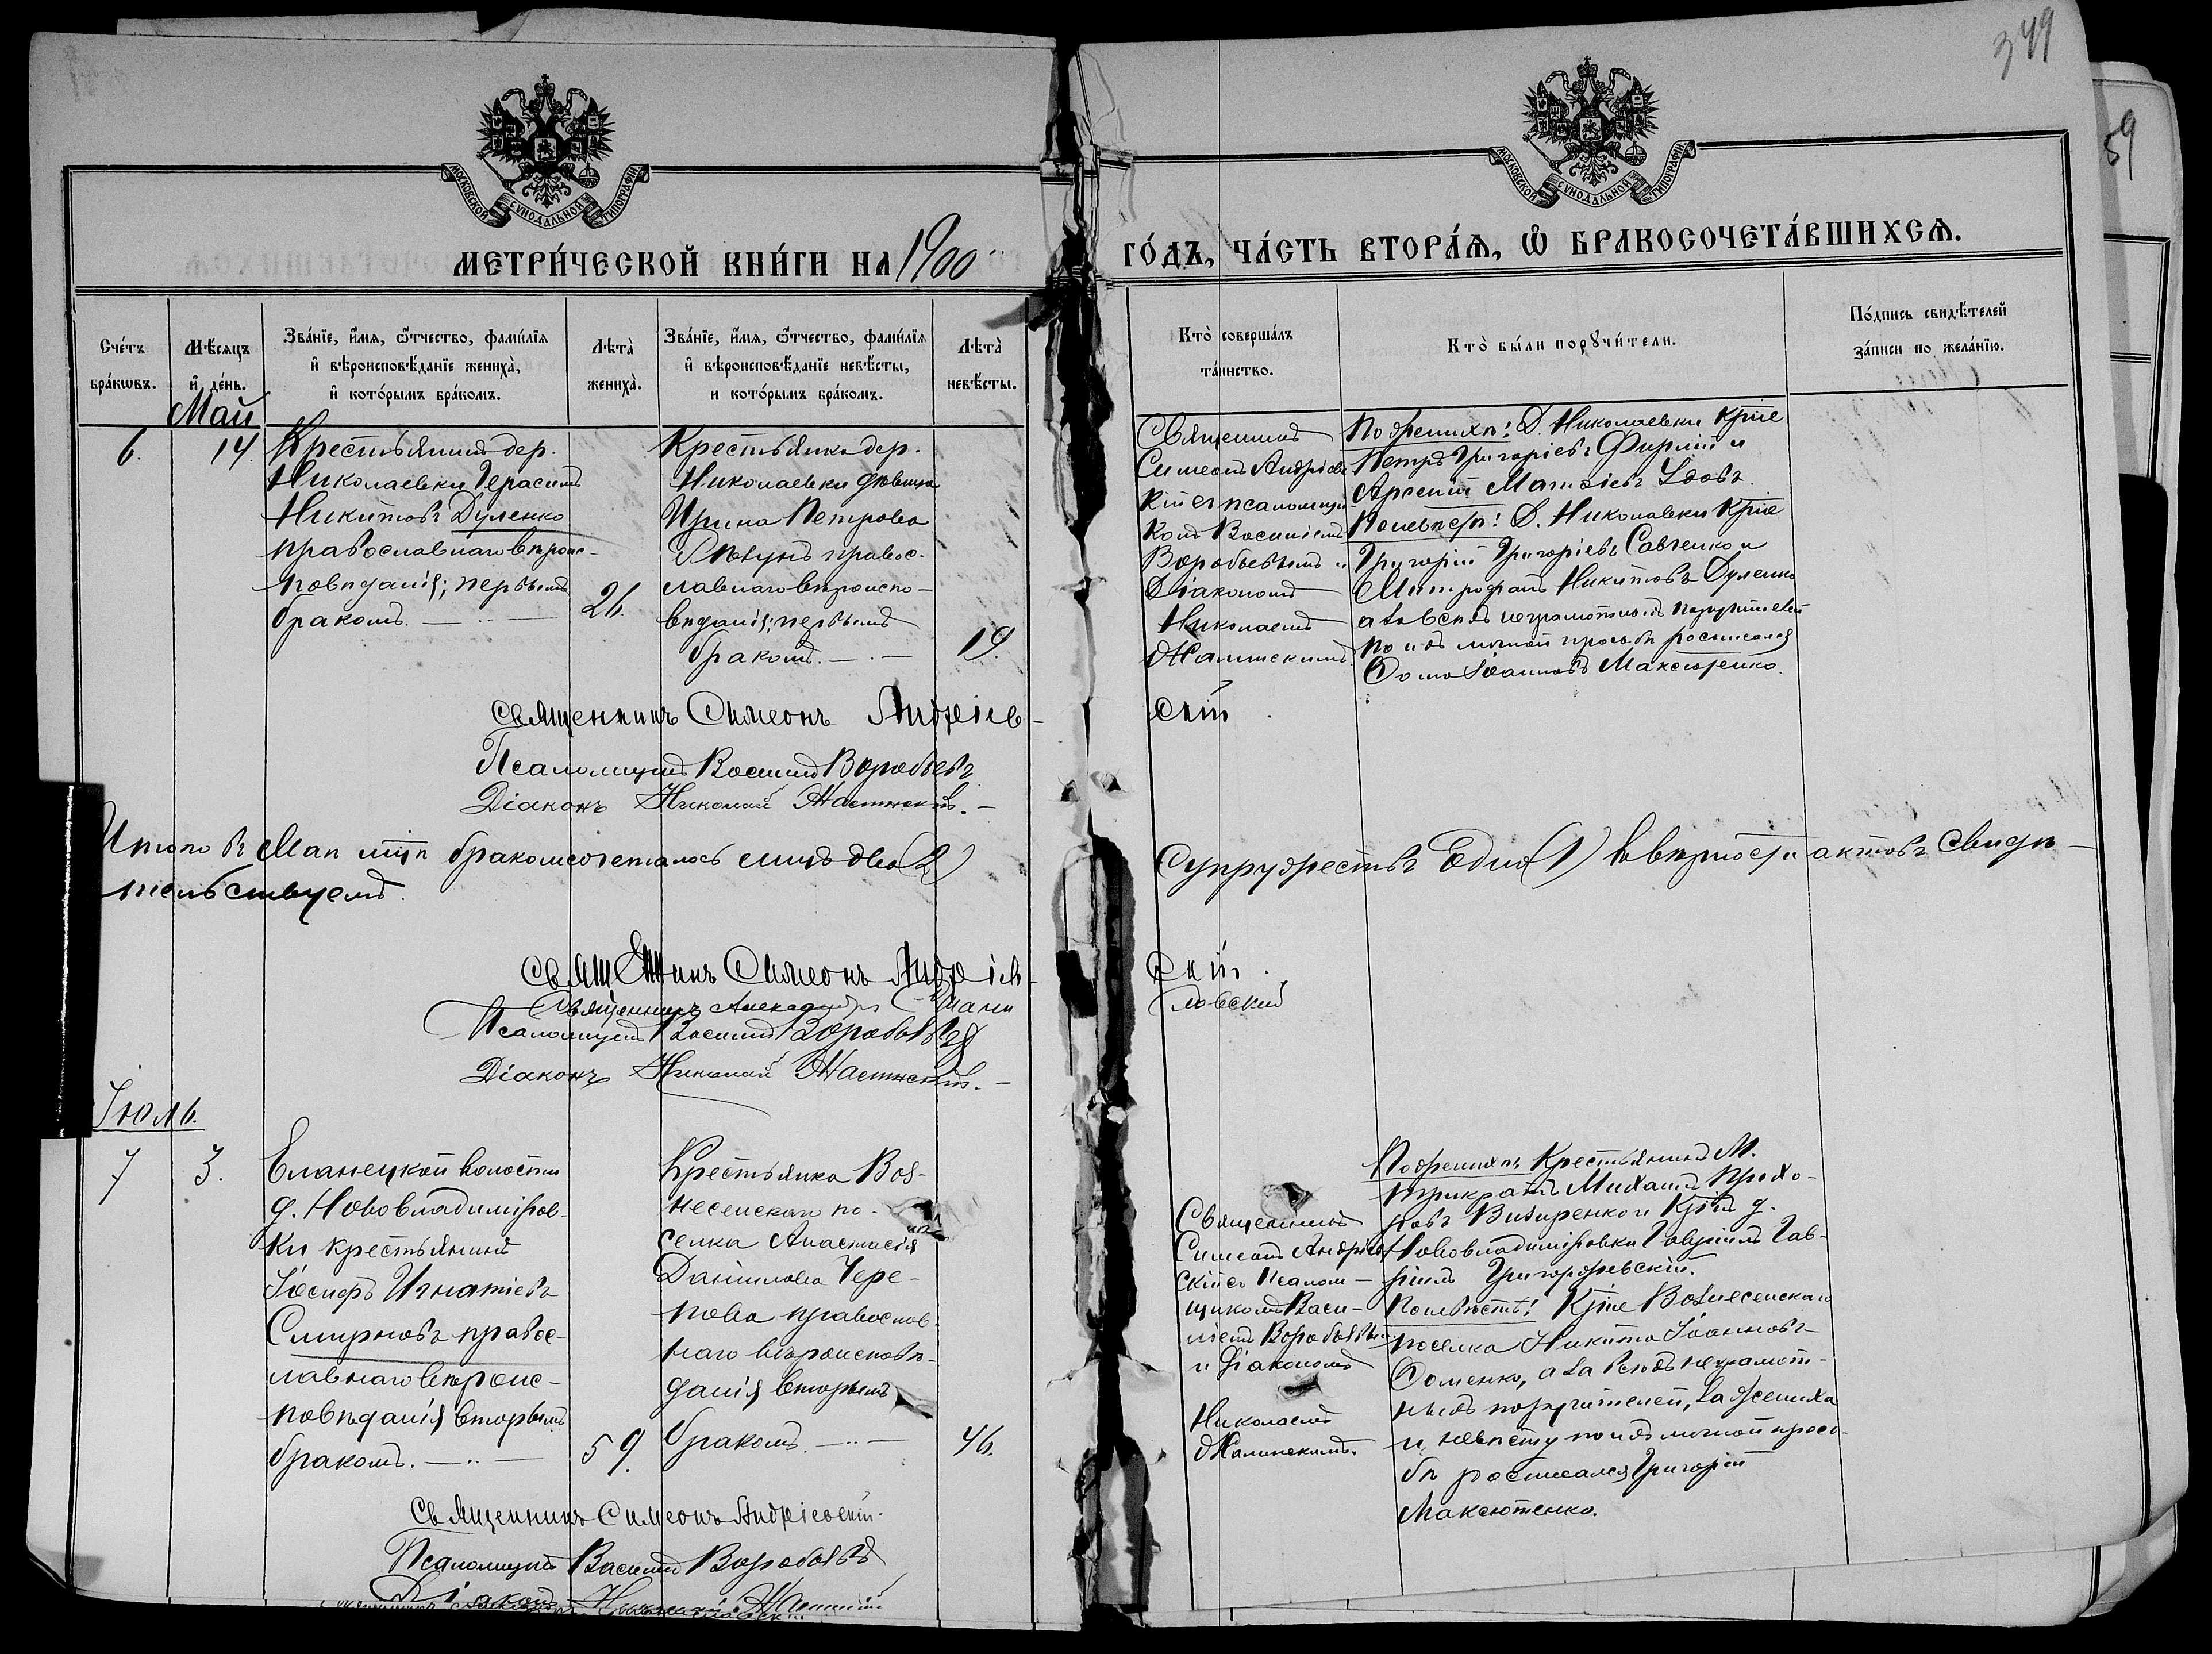 349
59
МОСКОВСКОЙ СѴНОДАЛЬНОЙ ТИПОГРАФІИ
МОСКОВСКОЙ СѴНОДАЛЬНОЙ ТИПОГРАФІИ
МЕТРИ́ЧЕСКОЙ КНИ́ГИ НА 1900
ГО́ДЪ, ЧА́СТЬ ВТОРА́Ѧ, Ѡ҆ БРАКОСОЧЕТА́ВШИХСѦ.
Сче́тъ бра́кѡвъ.
Мѣ́сяцъ и҆ де́нь.
Зва́нїе, и҆́мѧ, ѻ҆́тчество, фами́лїѧ и҆ вѣроисповѣ́данїе жениха̀, и҆ кото́рымъ бра́комъ.
Лѣта̀ жениха̀.
Зва́нїе, и҆́мѧ, ѻ҆́тчество, фами́лїѧ и҆ вѣроисповѣ́данїе невѣ́сты, и кото́рымъ бра́комъ.
Лѣта̀ невѣ́сты.
Кто̀ соверша́лъ та́инство.
Кто̀ бы́ли порꙋчи́тели.
По́дпись свидѣ́телей за́писи по жела́нїю.
Май
6.
14.
Крестьянинъ дер.
Николаевки Герасимъ
Никитовъ Дуленко
православнаго вѣроис-
повѣданія; первымъ
бракомъ.
26.
Крестьянка дер.
Николаевки дѣвица
Ирина Петрова
правос-
лавнаго вѣроиспо-
вѣданія; первымъ
бракомъ.
19.
Священникъ
Симеонъ Андріевс
кій съ псаломщи
комъ Василіемъ
Воробьевымъ и
Діакономъ
Николаемъ
По женихѣ: Д. Николаевки кр͞не
Петръ Григоріевъ Фирсинъ и
Арсеній Матѳіевъ
По невѣстѣ: Д. Николаевки кр͞не
Григорій Григоріевъ Савченко и
Митрофанъ Никитовъ Дуленко
а за всѣхъ неграмотныхъ поручителей
по ихъ личной просьбѣ росписался
Ѳома Іоанновъ Максютенко.
Священникъ Симеонъ Андріев-
скій.
Псаломщикъ Василій Воробьевъ
Діаконъ Николай
Итого въ Маѣ м͞цѣ бракомъ сочеталось лицъ два (2)
Супружествъ Одно (1) въ вѣрности актовъ свидѣ-
тельствуемъ.
Священникъ Симеонъ Андріев-
скій.
Священникъ Александръ
ловскій
Псаломщикъ Василій Воробьевъ
Діаконъ Николай
Іюль.
7
3.
Еланецкой волости
д. Нововладиміров-
ки крестьянинъ
Іосифъ Игнатіевъ
Смирновъ правос-
лавнаго вѣроис-
повѣданія вторымъ
бракомъ.
59.
Крестьянка Воз-
несенскаго по-
селка Анастасія
Даніилова Чере-
пова православ-
наго вѣроисповѣ-
данія вторымъ
бракомъ.
46.
Священникъ
Симеонъ Андріев
скій съ Псалом-
щикомъ Васи-
ліемъ Воробьевымъ
и Діакономъ
Николаемъ
По женихѣ: Крестьянинъ М.
Михаилъ Прохо-
ровъ и кр͞нъ д.
Нововладиміровки Гавріилъ Гав-
ріилъ
По невѣстѣ: Кр͞не Вознесенскаго
поселка Никита Іоанновъ
Ѳоменко, а за всѣхъ неграмот-
ныхъ поручителей, за жениха
и невѣсту по ихъ личной прось-
бѣ росписался Григорій
Максютенко.
Священникъ Симеонъ Андріевскій.
Псаломщикъ Василій Воробьевъ
Діаконъ Николай